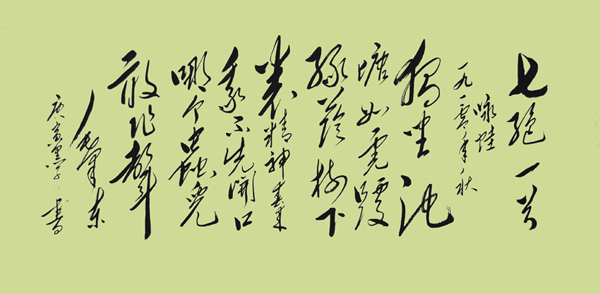 七绝一首
咏蛙
一九一零年秋
独坐池
塘如虎踞
绿荫树下
养精神春来
我不先开口
哪个虫儿
敢作聲
庚寅
書